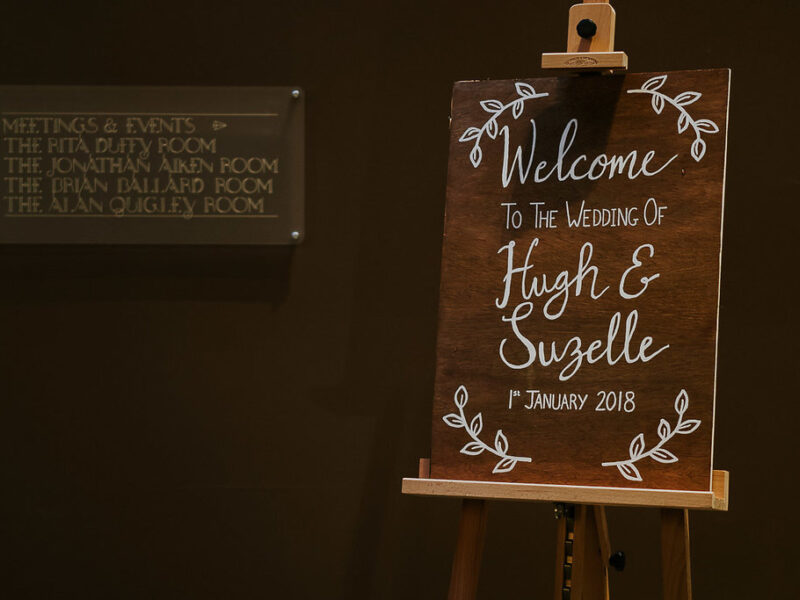 MEETINGS & EVENTS
THE RITA DUFFY ROOM
THE JONATHAN AIKEN ROOM
THE BRIAN BALLARD ROOM
THE ALAN QUIGLEY ROOM
Welcome
To The Wedding Of
Hugh &
Suzelle
1st January 2018